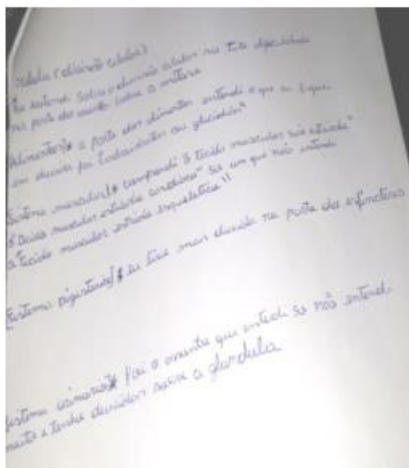 celula (divisão celular)
Eu entendi sobre a divisão celular na tive dificuldade
na parte do assunto sobre a mitose
Alimentos a parte dos alimentos entendi o que eu fiquei
em duvida foi Carboidratos ou glicidios"
Sistema muscular compendi o tecido muscular não estriado"
o tecido muscular estriado cardiaco" so um que não entendi
o tecido muscular estriado esqueletico"
Sistema digestorio eu tive mais duvida na parte das
Sistema foi o assunto que entendi so não entendi
muito e tenho duvidas sobre a glandula